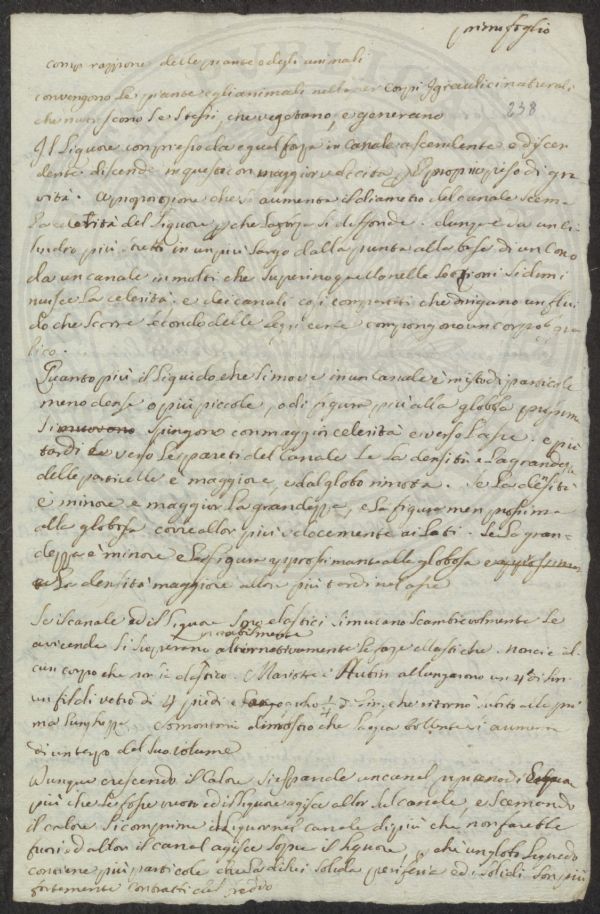 primo foglio
comparazione delle piante e degli animali
convengono le piante e gli animali nell'esser corpi Igraulici naturali
238
che nutriscono se stessi, che vegetano, e generano
Il liquore compreso da egual forza in canale ascendente e discen
dente discende in questi con maggior velocità p proprio peso di gra
vità. A proporzione che si aumenta il diametro del canale scema
la celerità del liquore p che la forza si diffonde. dunque da un ci
lindro più stretti in un più largo dalla punta alla base di un Cono
da un canale in molti che superino quello nelle Sezioni si dimi
nuisce la celerità. e dei canali così compartiti che dirigano un flui
do che scorre secondo delle leggi certe compongono un corpo
lico.
Quanto più il liquido che si move in un Canale è misto di particole
meno dense o più piccole, o di figura più alla globosa prossima
si muovono spingono con maggior celerità e verso l'asse. e più
tardi verso le pareti del Canale se la densità e la grandezza
delle particelle è maggiore, e dal globo rimota. Se la densità
è minore e maggior la grandezza, e la figura men prossima
alla globosa corre allor più velocemente ai lati. Se la gran-
dezza è minore e la figura approssimante alla globosa
e la densità maggiore allora più tardi nel asse
Se il canale ed il liquore sono elastici si mutano scambievolmente le
avicende si superano alternativamente le forze ellastiche. non ci è al
cun corpo che non sia elastico. Mariotte e Hubin allungarono un 4° di lin.
un fil di vetro di 4 piedi e che ritornò subito alla pri
ma lunghezza. dimostrò che l'acqua bollente si aumenta
di un terzo del suo volume
Dunque crescendo il calore si espande un canal
più che se fosse vuoto ed il liquore agisce allor sul canale, e scemando
il calore si comprime il liquor nel canale di più che non farebbe
fuori, ed allor il canal agisce sopra il liquore, p che un globo liquido
contiene più particole che la di lui solida periferia ed i solidi son più
fortemente contratti dal freddo